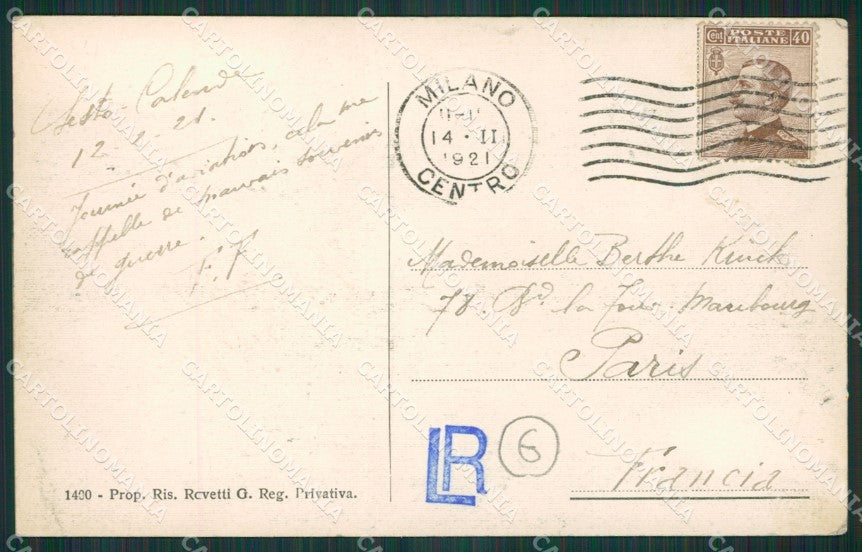 Sesto Calende
12-2-21.
Journée d'aviation, cela me
rappelle de mauvais souvenirs
de guerre.
F. F
1400 - Prop. Ris. Rovetti G. Reg. Privativa.
MILANO
14 · II
1921
CENTRO
Cent POSTE ITALIANE 40
Mademoiselle Berthe
78. Bd la Tour-Maubourg
Paris
Francia
LR
6
CARTOLINOMANIA